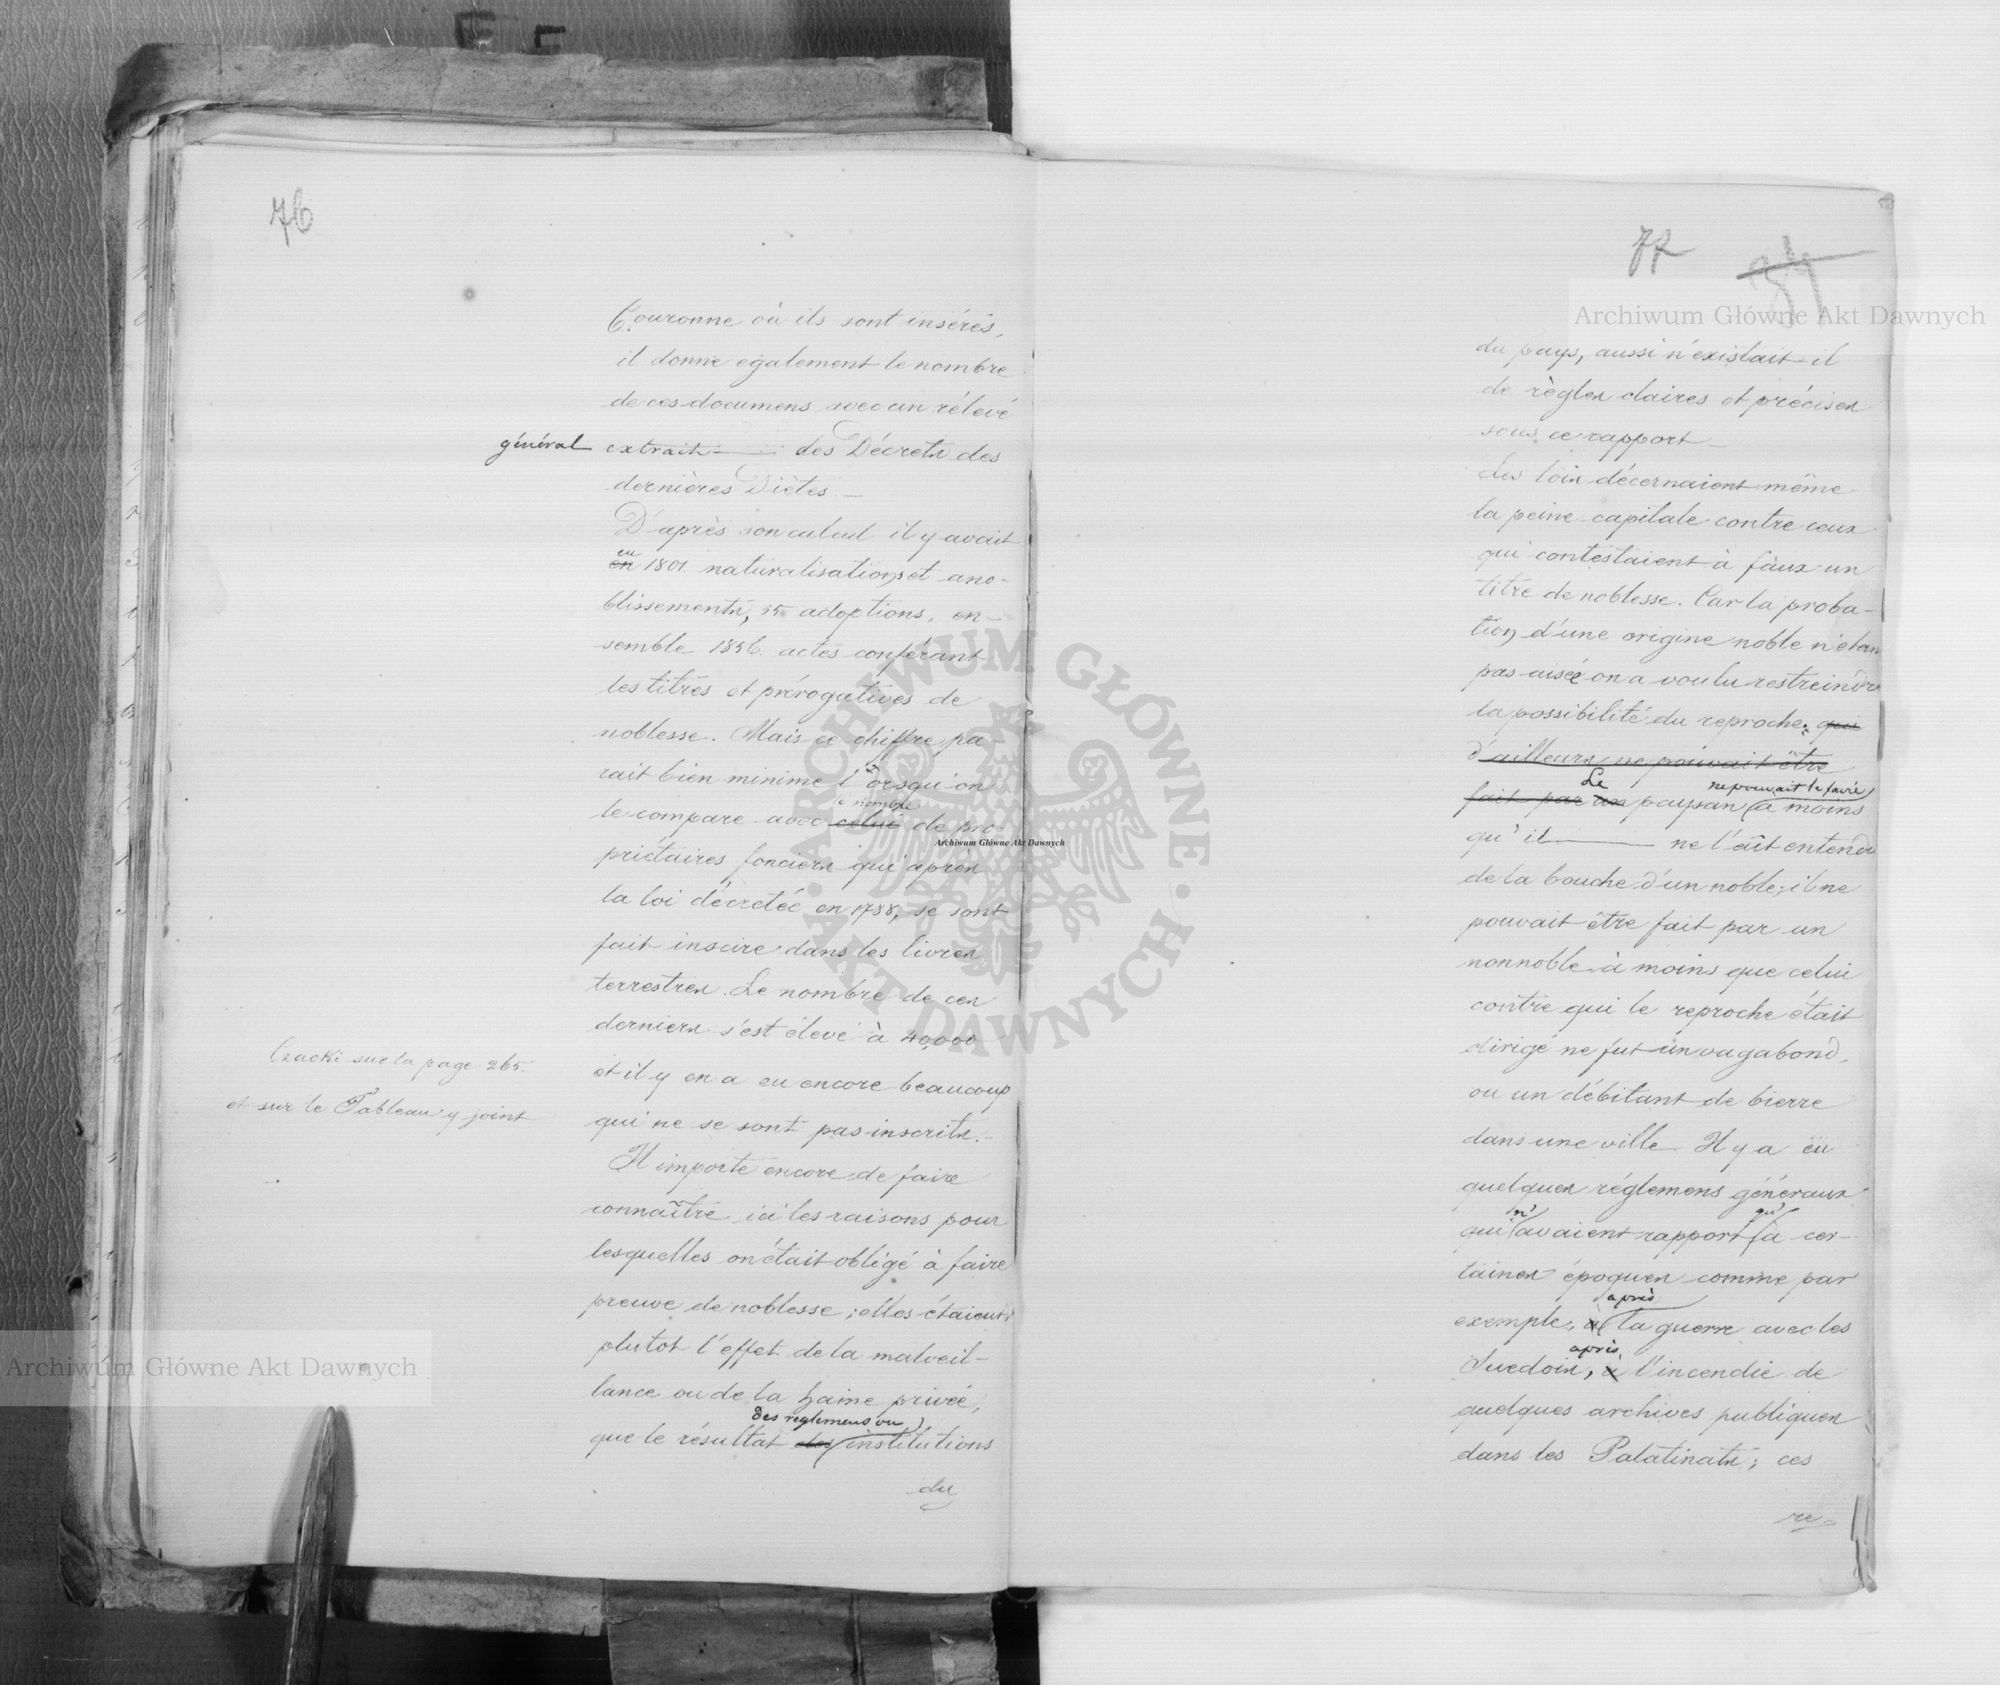 76
Couronne où ils sont insérés,
il donne également le nombre
de ces documens avec un rélevé
général extrait des Décrets des
dernières Diètes
D'après son calcul il y avait
eu
en 1801 naturalisations et ano-
blissements, adoptions, en-
semble 1856 actes conférant
les titres et prérogatives de
noblesse. Mais ce chiffre pa-
rait bien minime lorsqu'on
e nombre
le compare avec celui de pro-
priétaires fonciers qui après
la loi décretée en 1788, se sont
fait inscire dans les livres
terrestres. Le nombre de ces
derniers s'est élevé à 40,000
Czacki sur la page 265.
et il y en a eu encore beaucoup
et sur le Tableau y joint
qui ne se sont pas inscrits.-
Il importe encore de faire
connaître ici les raisons pour
lesquelles on était obligé à faire
preuve de noblesse; elles étaient
plutot l'effet de la malveil-
lance ou de la haine privée,
des reglemens ou
que le résultat des institutions
du
77
du pays, aussi n'existait-il
de règles claires et précises
sous ce rapport
Les lois décernaient même
la peine capitale contre ceux
qui contestaient à faux un
titre de noblesse. Car la proba-
tion d'une origine noble n'étan
pas aisée on a voulu restreindre
la possibilité du reproche; qui
d'ailleurs ne pouvait être
Le ne pouvait le faire
fait par un paysan à moins
qu'il ne l'aît entendu
de la bouche d'un noble; il ne
pouvait être fait par un
nonnoble à moins que celui
contre qui le reproche était
dirigé ne fut un vagabond,
ou un débitant de bierre
dans une ville Il y a eu
quelques réglemens généraux
n' qu'
qui avaient rapport à cer-
taines époques comme par
après
exemple, à la guerre avec les
après
Suedois, à l'incendie de
quelques archives publiques
dans les Palatinats; ces
re-
Archiwum Główne Akt Dawnych
Archiwum Główne Akt Dawnych
Archiwum Główne Akt Dawnych
ARCHIWUM GŁÓWNE AKT DAWNYCH